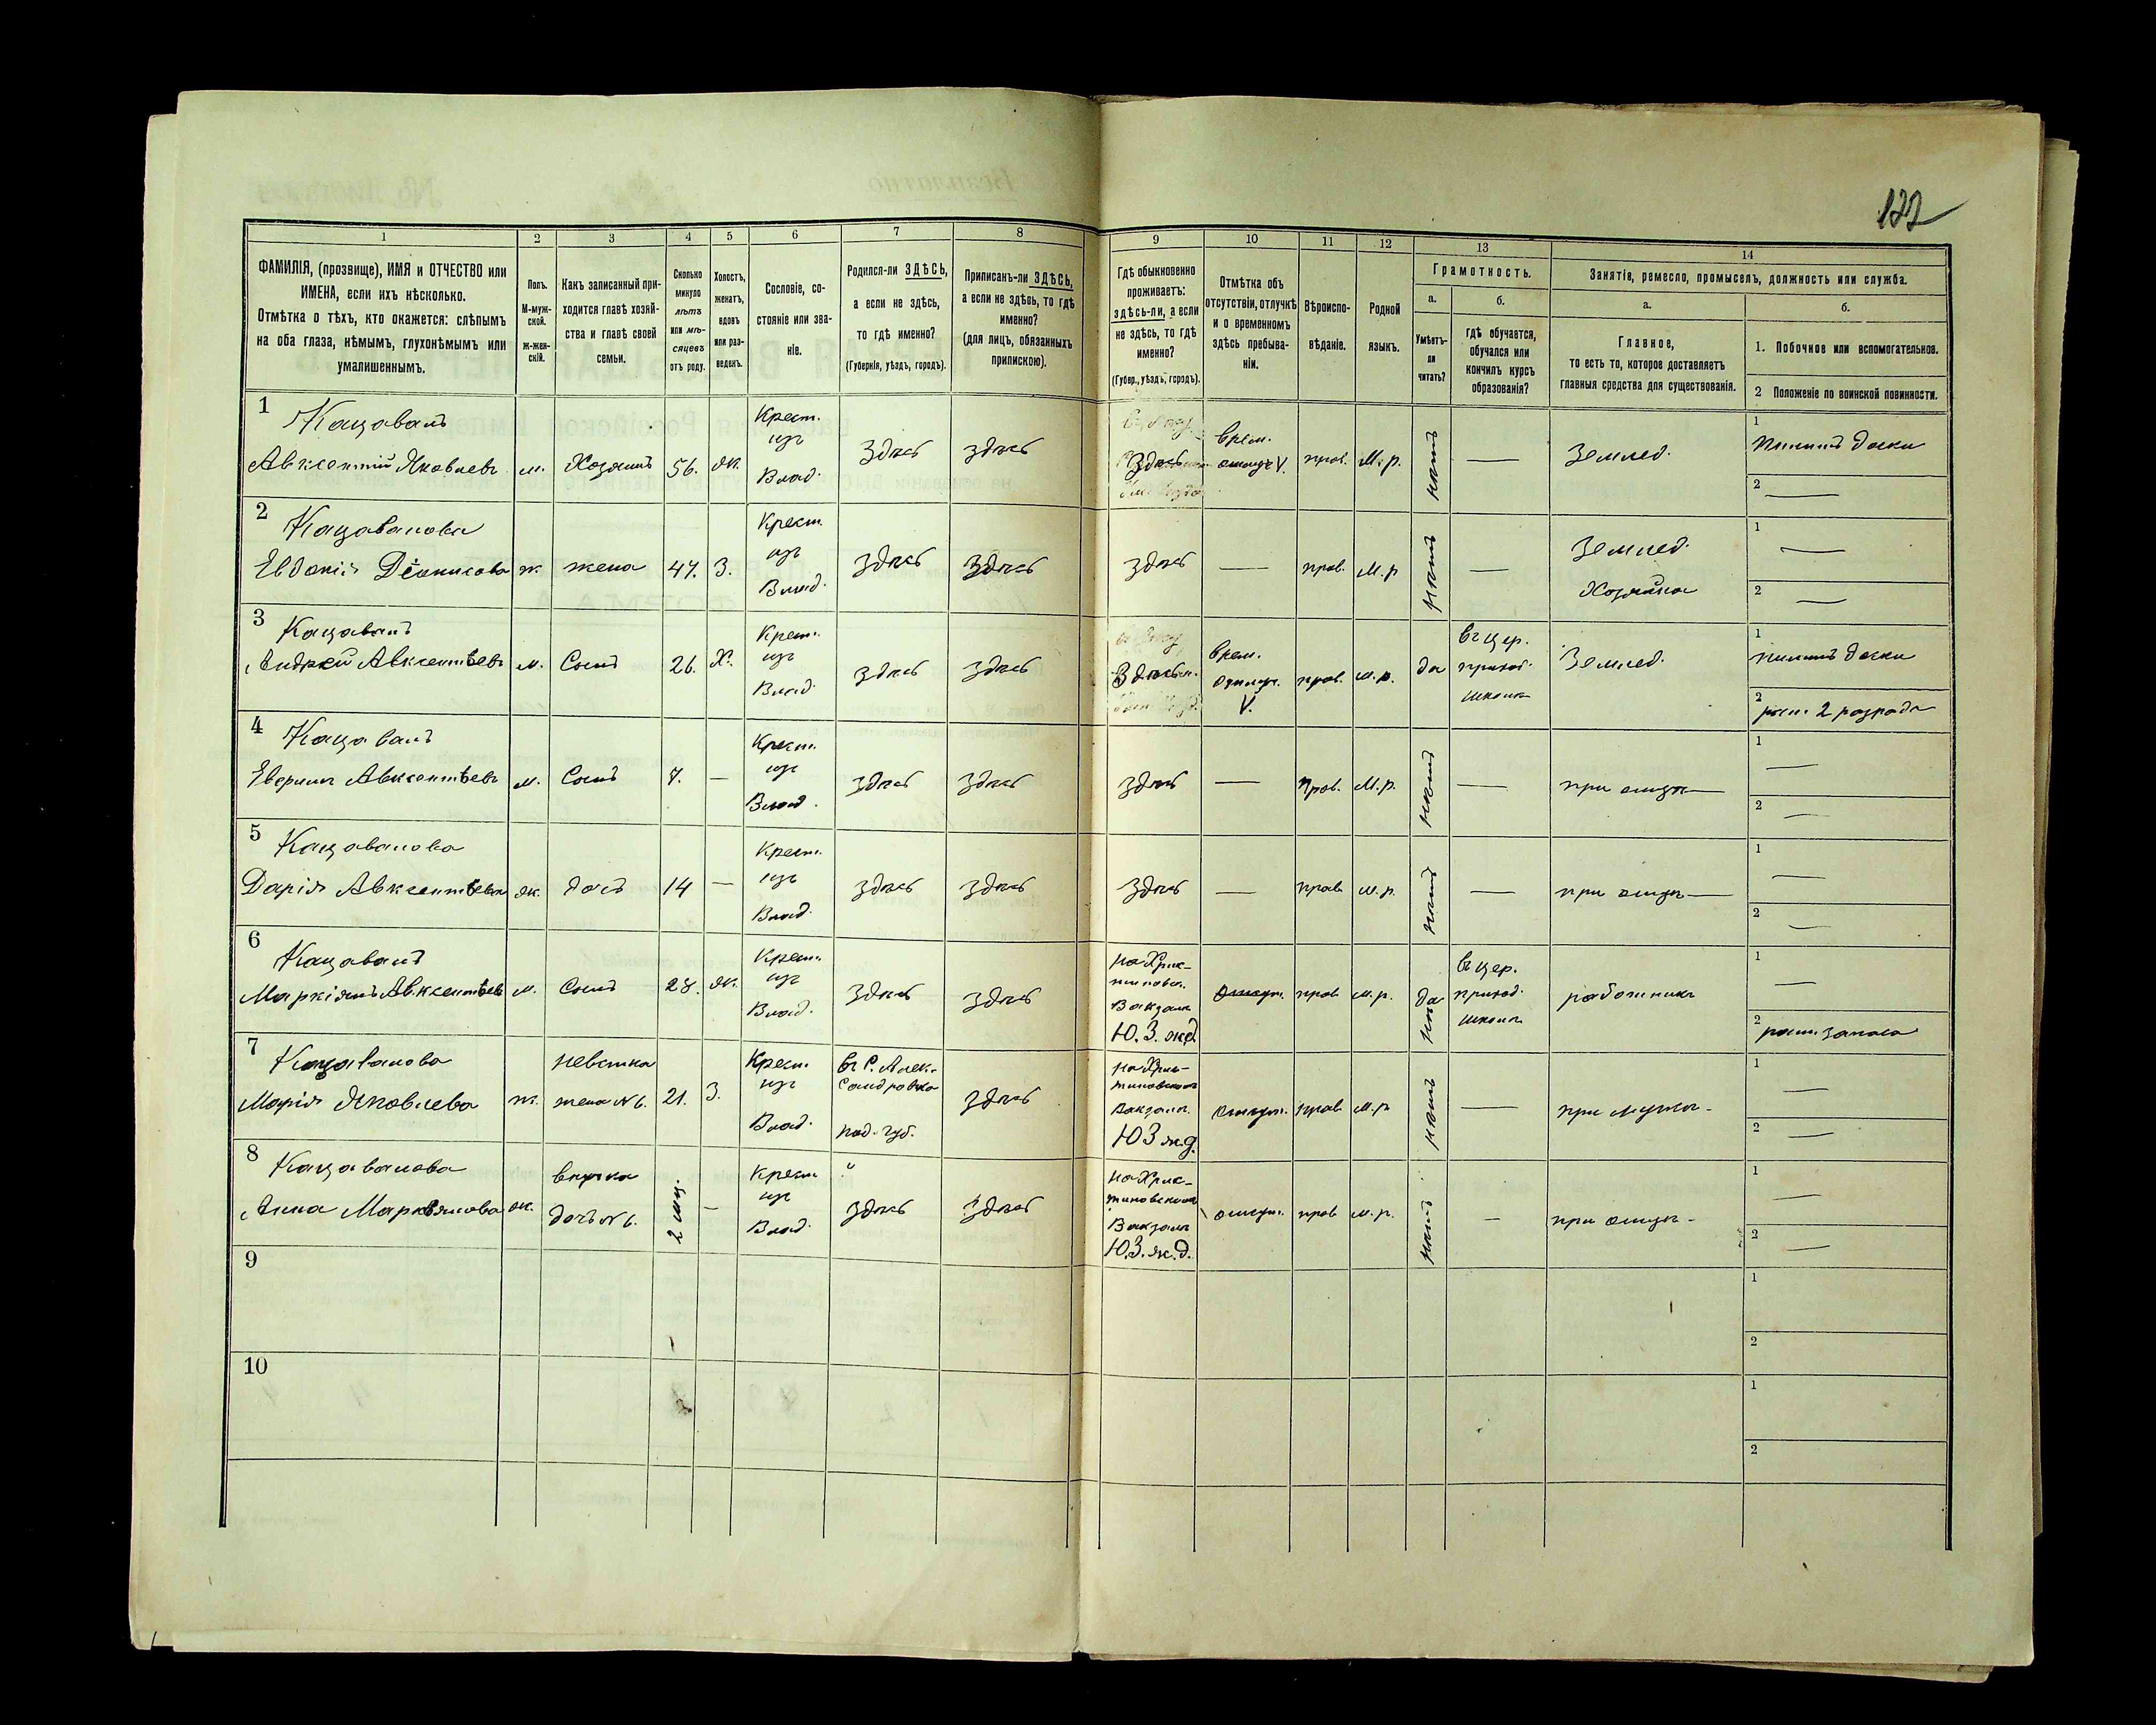 122
1
2
3
4
5
6
7
8
9
10
11
12
13
14
ФАМИЛІЯ, (прозвище), ИМЯ и ОТЧЕСТВО или
ИМЕНА, если ихъ нѣсколько.
Отмѣтка о тѣхъ, кто окажется: слѣпымъ
на оба глаза, нѣмымъ, глухонѣмымъ или
умалишеннымъ.
Полъ.
М-муж-
ской.
ж-жен-
скій.
Какъ записанный при-
ходится главѣ хозяй-
ства и главѣ своей
семьи.
Сколько
минуло
лѣтъ
или мѣ-
сяцевъ
отъ роду.
Холостъ,
женатъ,
вдовъ
или раз-
веденъ.
Сословіе, со-
стояніе или зва-
ніе.
Родился-ли ЗДѢСЬ,
а если не здѣсь,
то гдѣ именно?
(Губернія, уѣздъ, городъ).
Приписанъ-ли ЗДѢСЬ,
а если не здѣсь, то гдѣ
именно?
(для лицъ, обязанныхъ
припискою).
Гдѣ обыкновенно
проживаетъ:
здѣсь-ли, а если
не здѣсь, то гдѣ
именно?
(Губер., уѣздъ, городъ).
Отмѣтка объ
отсутствіи, отлучкѣ
и о временномъ
здѣсь пребыва-
ніи.
Вѣроиспо-
вѣданіе.
Родной
языкъ.
Грамотность.
а.
Умѣетъ-
ли
читать?
б.
гдѣ обучается,
обучался или
кончилъ курсъ
образованія?
Занятіе, ремесло, промыселъ, должность или служба.
а.
Главное,
то есть то, которое доставляетъ
главныя средства для существованія.
б.
1. Побочное или вспомогательное.
2 Положеніе по воинской повинности.
1 Кацаванъ
Авксентій Яковлевъ м. Хозяинъ 56. ж. Крест. изъ Влад. здѣсь здѣсь здѣсь врем. отлуч V. прав. М. р. нѣтъ — Землед. 1 пилитъ доски 2 —
2 Кацаванова
Евдокія Діонисова ж. жена 47. З. Крест. изъ Влад. здѣсь здѣсь здѣсь — прав. М. р нѣтъ — Землед. Хозяйка 1 — 2 —
3 Кацаванъ
Андрей Авксентьевъ м. Сынъ 26. Х. Крест. изъ Влад. здѣсь здѣсь здѣсь врем. отлуч. V. прав. м. р. да въ цер. приход. школѣ Землед. 1 пилитъ доски 2 ратн. 2 разряда
4 Кацаванъ
Авксентьевъ м. Сынъ 7. — Крест. изъ Влад. здѣсь здѣсь здѣсь — прав. М. р. нѣтъ — при отцѣ — 1 — 2 —
5 Кацаванова
Дарія Авксентьева ж. дочь 14 — Крест. изъ Влад. здѣсь здѣсь здѣсь — прав. м. р. нѣтъ — при отцѣ — 1 — 2 —
6 Кацаванъ
Маркіянъ Авксентьевъ м. Сынъ 28. ж. Крест. изъ Влад. здѣсь здѣсь на Хрис- тиновск. Вакзалѣ Ю. З. ж.д. отсут. прав м. р. да въ цер. приход. школѣ работникъ 1 — 2 ратн. запаса
7 Кацаванова
Марія Яковлева ж. невѣстка жена №6. 21. З. Крест. изъ Влад. въ С. Алек- сандровка под. губ. здѣсь на Хрис- тиновском Вакзалѣ Ю З ж.д. отсут. прав. м. р нѣтъ — при мужѣ - 1 — 2 —
8 Кацаванова
Анна Маркіянова ж. внучка дочь №6. 2 мц. — Крест. изъ Влад. " здѣсь здѣсь на Хрис- тиновском Вакзалѣ Ю.З. ж.д. отсут. прав м. р. нѣтъ — при отцѣ - 1 — 2 —
9
1
2
10
1
2